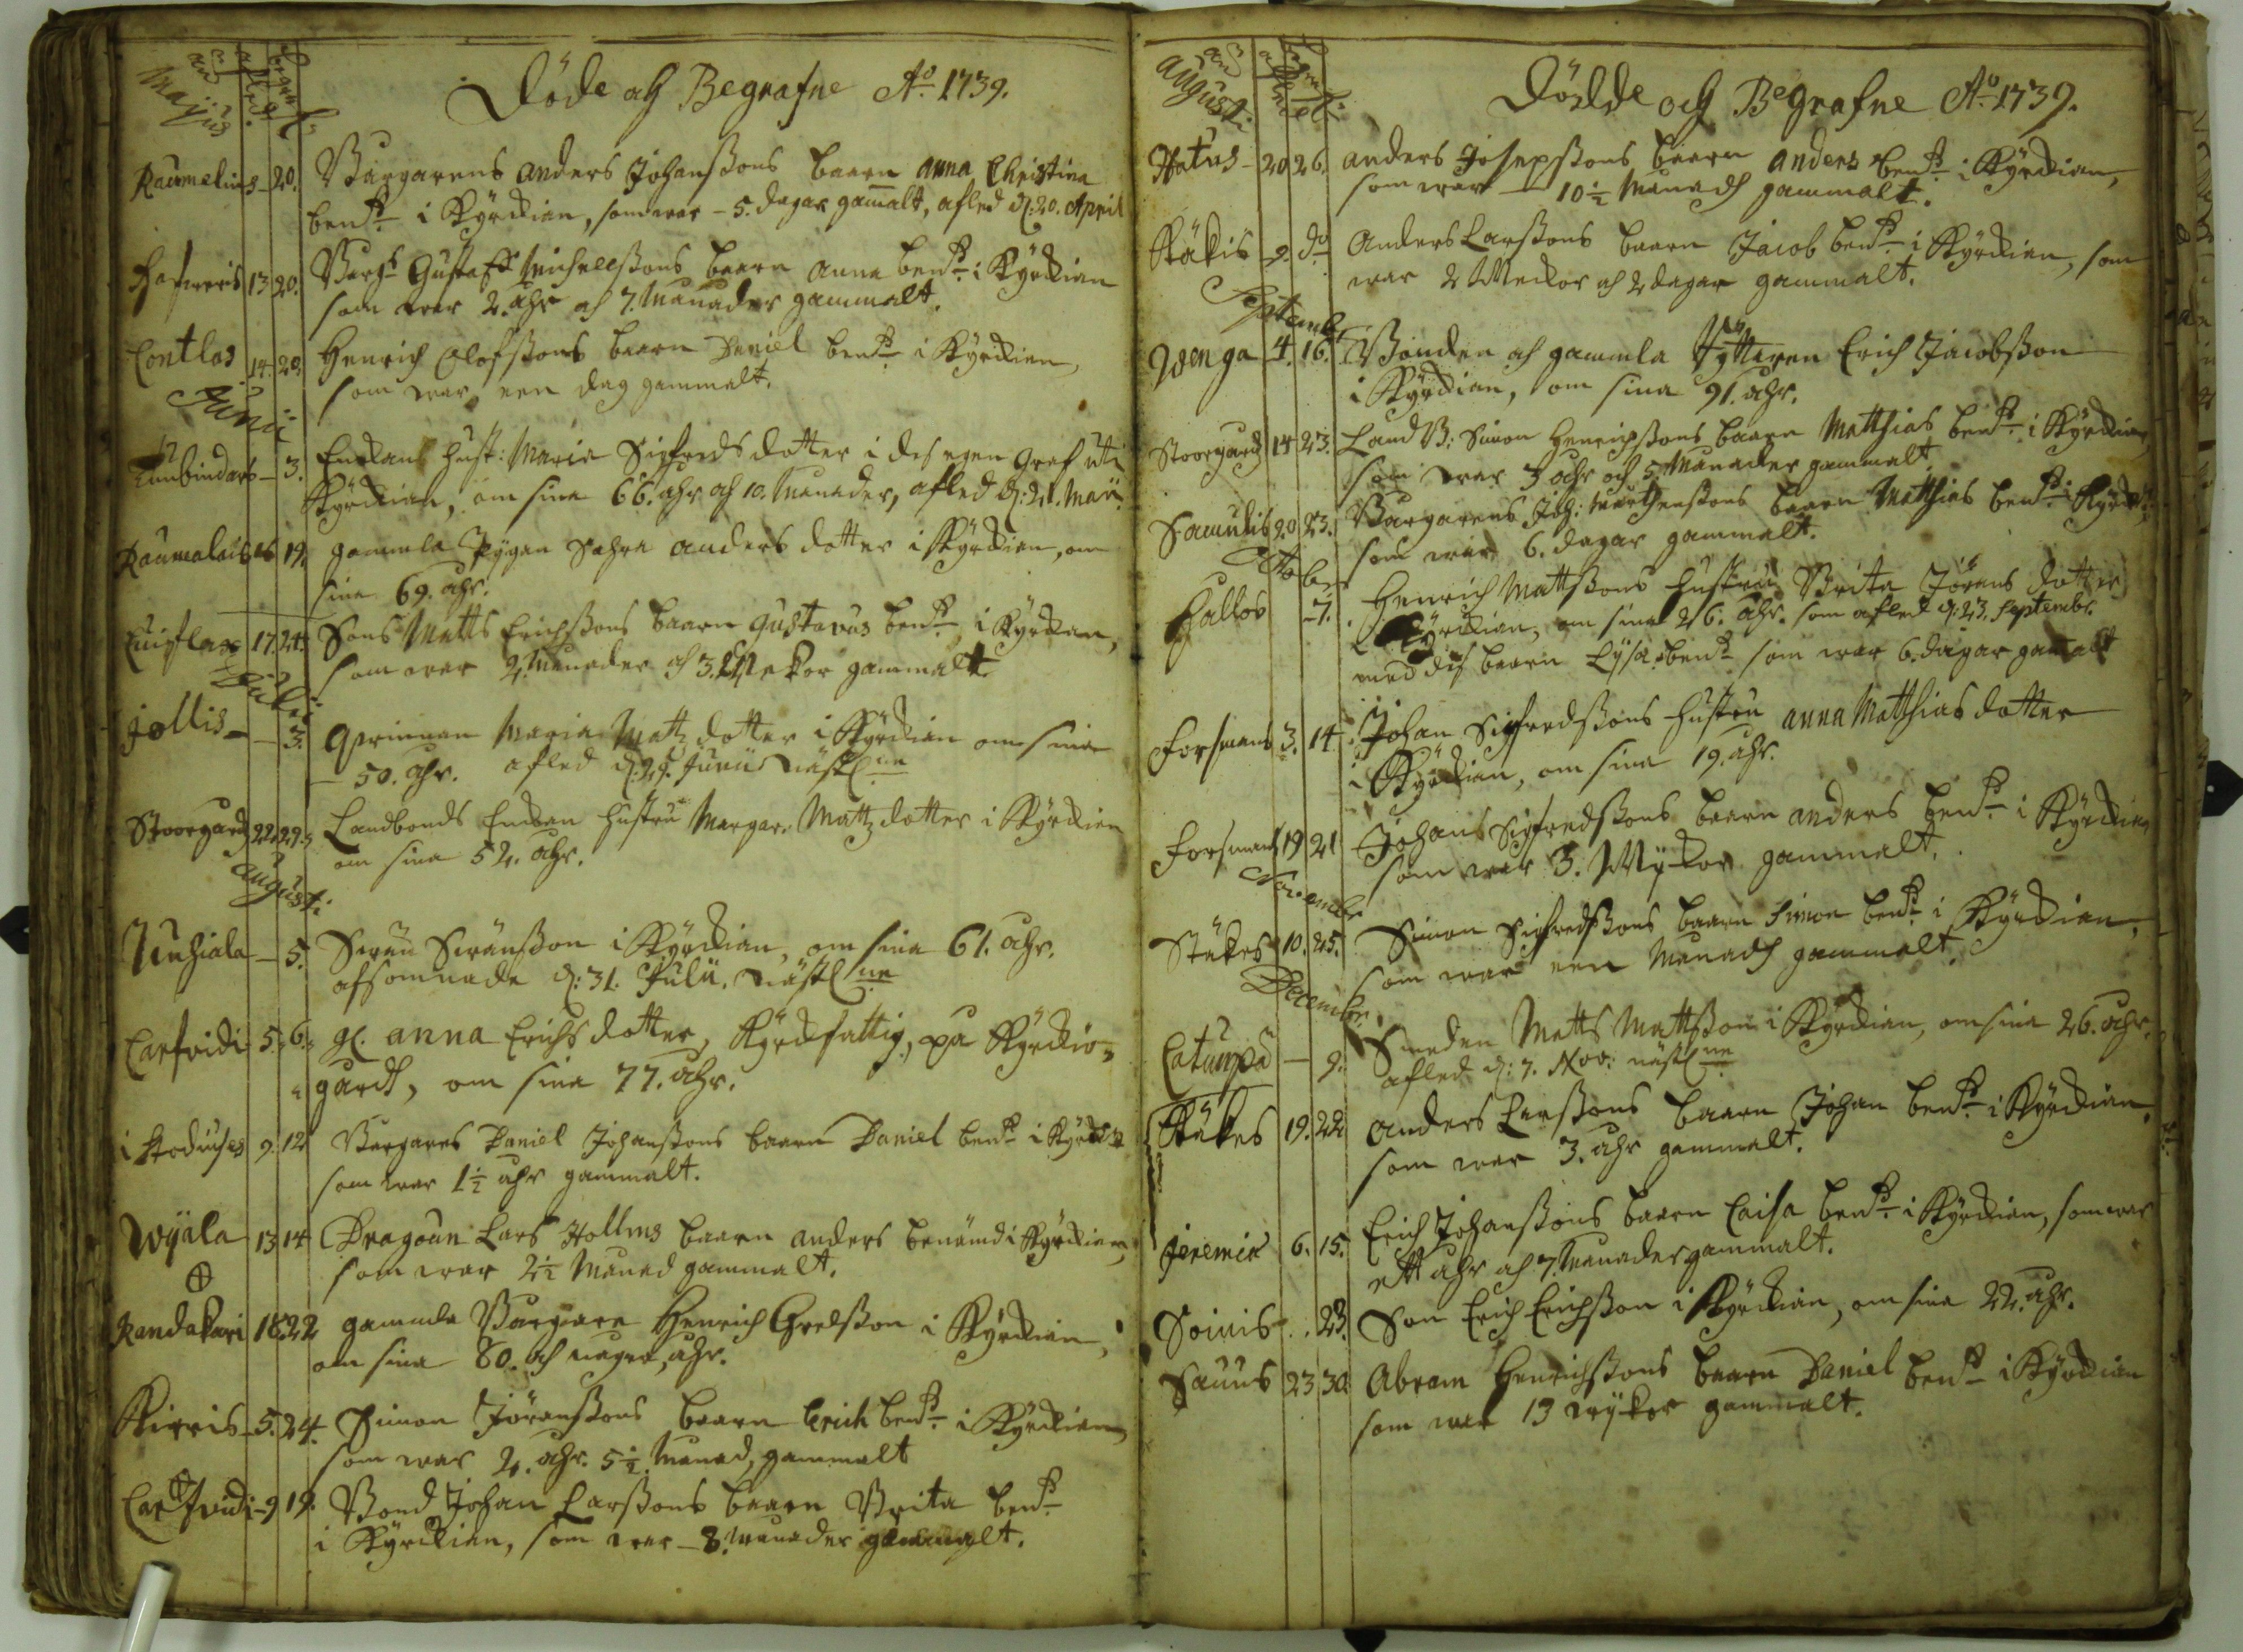 Döde och Begrafne Ao 1739.
Majus
Raumelins - 20. Borgarens Anders Johanssons baarn Anna Christina
bend i Kyrckian, som war - 5. dagar gamalt, afled d: 20. April
13 20. Borgs Gustaff Michellssons baarn Anna bend i Kyrckian
som war 2. åhr och 7. Månader gammalt.
Contlas 14. 20. Henrich Olofssons baarn Daniel bend i Kyrckian,
som war een dag gammalt.
Junii
- 3. Hust: Maria Sigfreds dotter i des egen Graf uti
Kyrckian, om sina 66. åhr och 10. Månader, afled d: 21. Maii.
Raumalais 16 19. gammla Pygan Sahra Anders dotter i Kyrckian, om
sina 69. åhr.
17. 24. Sons Matts Erichssons baarn Gustavus bend i Kyrckian,
som war 2. Månader och 3. Weckor gammalt.
Julii
Jollis - - 3. Qwinnan Maria Matz dotter i Kyrckian om sina
50. åhr. afled d: 29. Junii nästl ne
Stoorgård 22. 29. Landbonds Enckan hustru Margar. Matz dotter i Kyrckian
om sina 52. åhr.
Augusti
Unhiala - 5. i Kyrckian, om sina 61. åhr.
afsomnade d: 31. Julii. nästl ne
Carfvidi 5. 6. gl. Anna Erichs dotter, Kyrckfattig, på Kyrckio-
gårdh, om sina 77. åhr.
9. 12 Borgares Daniel Johanssons baarn Daniel bend i Kyrck:
som war 1 1/2 åhr gammalt.
Wyala 13 14 Dragoun Lars Hollms baarn Anders benämd i Kyrckian,
som war 2 1/2 Månad gammalt.
Randakari 18. 22 gammla Borgaren Henrich Grelsson i Kyrckian,
om sina 80. och några åhr.
Kirris - 5. 24. Simon Jöranssons baarn Erich bend i Kyrckian,
som war 2. åhr. 5 1/2. Månad, gammalt
Carfvidi - 9 19. Bond Johan Larssons baarn Brita bend
i Kyrckian, som war - 8. Månader gammalt.
Augusti
Dödde och Begrafne Ao 1739.
Hatus - 20 26. Anders Josepssons baarn Anders bend i Kyrckian,
som war - 10 1/2 Månadh gammalt.
Stäkis - 9. do Anders Larssons baarn Jacob bend i Kyrckian, som
war 2 Weckor och 2 dagar gammalt.
Septembr
Wenga 4. 16. Bonden och gammla Ryttaren Erich Jacobsson
i Kyrckian, om sina 91. åhr.
Stoorgård 14 23. Land B: Simon Henrichssons baarn Matthias bend i Kyrckian,
som war 3 åhr och 5 Månader gammalt.
Samulis 20. 23. Borgarens Joh: Mårthenssons baarn Matthias bend i Kyrck:
som war 6. dagar gammalt.
Octobr
Hallos - 7. Henrich Mattssons hustru Brita Jörans dotter
i Kyrckian, om sina 26. åhr. som afled d: 23. Septembr.
med des baarn Lysa bend som war 6. dagar gamalt
Forsmans 3. 14. Johan Sigfredssons hustru Anna Matthias dotter
i Kyrckian, om sina 19. åhr.
Forsmans 19 21 Johans Sigfredssons baarn Anders bend i Kyrckian
som war 3. Wyckor gammalt.
Novembr
Stäkes 10. 25. Simon Sigfredssons baarn Simon bend i Kyrckian,
som war een Månadh gammalt.
December
Catunpä - 9. Smeden Matts Mattsson i Kyrckian, om sina 26. åhr.
afled d: 7. Nov: nästl ne
Stäkes 19. 22 Anders Larssons baarn Johan bend i Kyrckian,
som war 3. åhr gammalt.
Jeremis 6. 15. Erich Johanssons baarn Caisa bend i Kyrckian, som war
ett åhr och 7. Månader gammalt.
Soinis . . 23. Son Erich Erichsson i Kyrckian, om sina 22. åhr.
Sauus 23 30 Abram Henrichssons baarn Daniel bend i Kyrckian
som war 13 wyckor gammalt.